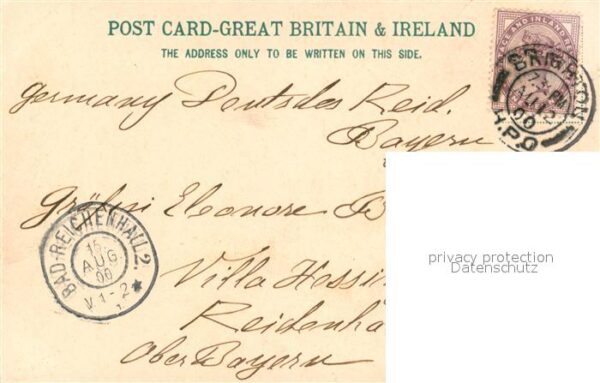 POST CARD-GREAT BRITAIN & IRELAND
THE ADDRESS ONLY TO BE WRITTEN ON THIS SIDE.
BRIGHTON
00
H.P.O
Germany Deutsches Reid.
Bayern
Gräfin Eleonore B
BAD-REICHENHALL 2.
15
AUG
00
V 1-2
Villa Hessi
Reidenha
Ober Bayern
privacy protection
Datenschutz